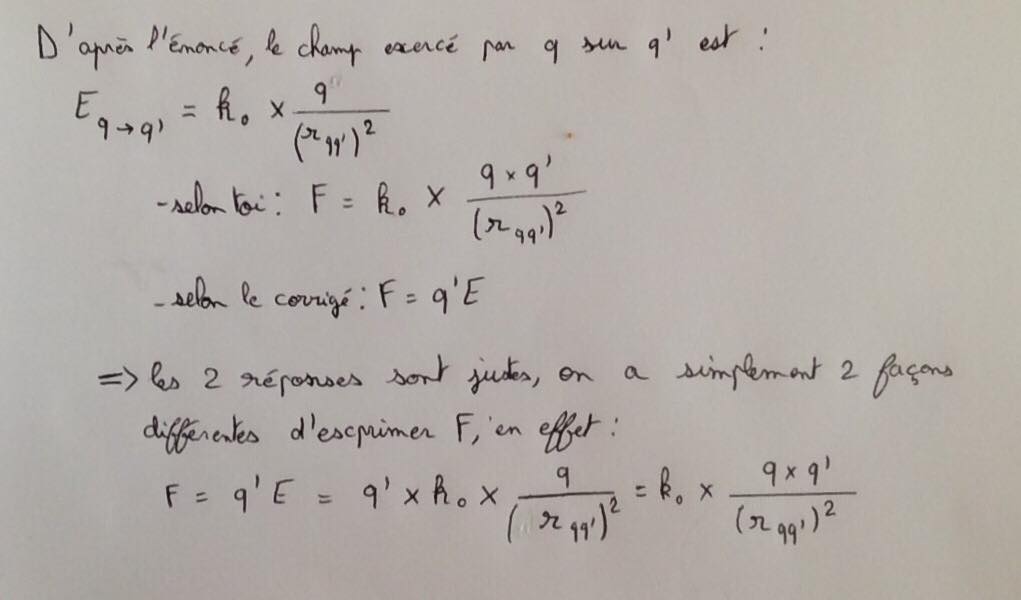 D'après l'énoncé, le champ exercé par q sur q' est :
E_{q→q'} = k₀ × q / (r_{qq'})²
- selon toi : F = k₀ × (q × q') / (r_{qq'})²
- selon le corrigé : F = q'E
=> les 2 réponses sont justes, on a simplement 2 façons
différentes d'exprimer F, en effet :
F = q'E = q' × k₀ × q / (r_{qq'})² = k₀ × (q × q') / (r_{qq'})²